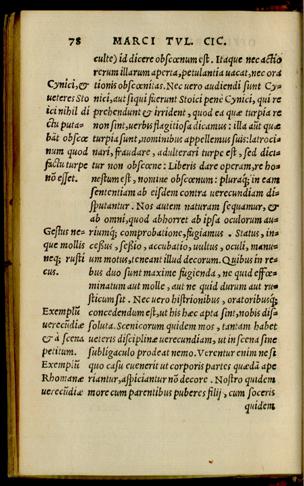 78 MARCI TVL. CIC.
culte) id dicere obscœnum est. Itaque nec actio
rerum illarum aperta, petulantia uacat, nec ora
tionis obscœnitas. Nec uero audiendi sunt Cy-
nici, aut si qui fuerint Stoici penè Cynici, qui re
prehendunt & irrident, quod ea quæ turpia re
non sint, uerbis flagitiosa dicamus: illa aūt quæ
turpia sunt, nominibus appellemus suis: latroci-
nari, fraudare, adulterari turpe est, sed dicta
tur non obscœne: Liberis dare operam, re ho-
nestum est, nomine obscœnum: pluraq; in eam
sententiam ab eisdem contra uerecundiam di-
sputantur. Nos autem naturam sequamur, &
ab omni, quod abhorret ab ipsa oculorum au-
riumq; comprobatione, fugiamus. Status, in-
cessus, sessio, accubatio, uultus, oculi, manu-
um motus, teneant illud decorum. Quibus in re-
bus duo sunt maxime fugienda, ne quid effœ-
minatum aut molle, aut ne quid durum aut ru-
sticum sit. Nec uero histrionibus, oratoribusq;
concedendum est, ut his hæc apta sint, nobis dis-
soluta. Scenicorum quidem mos, tantam habet
ueteris disciplinæ uerecundiam, ut in scena sine
subligaculo prodeat nemo. Verentur enim ne si
quo casu euenerit ut corporis partes quædā ape
riantur, aspiciantur nō decore. Nostro quidem
more cum parentibus puberes filij, cum soceris
quidem
Cynici, &
ueteres Sto
ici nihil di
ctu puta-
bāt obscœ
num quod
factu turpe
nō esset.
Gestus ne-
que mollis
neq; rusti
cus.
Exemplū
uerecūdiæ
& à scena
petitum.
Exemplū
Rhomanæ
uerecūdiæ